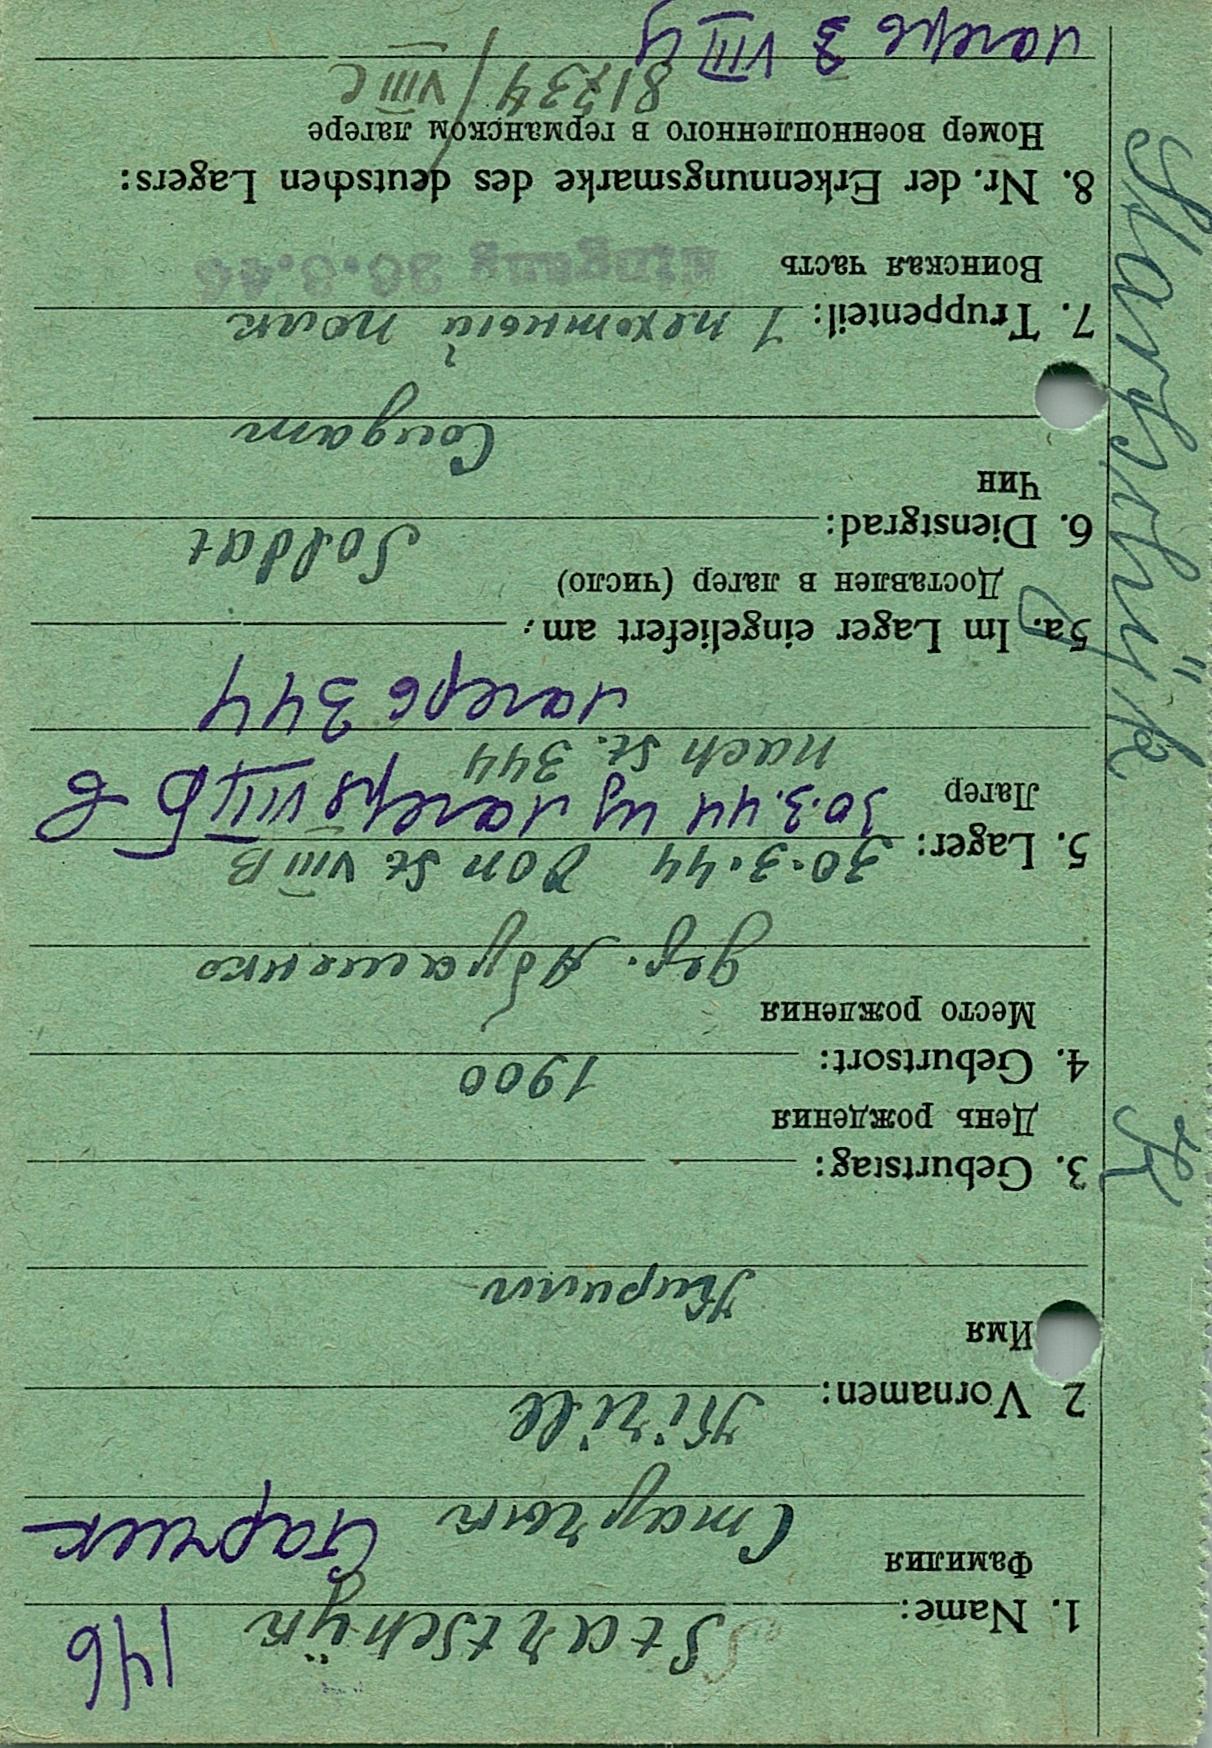 146
1. Name: Startschÿk
Фамилия
Старчик Старчик
2 Vornamen: Kirill
Имя
Кирилл
3. Geburtstag:
День рождения
1900
4. Geburtsort:
Место рождения
дер. Абрашенко
5. Lager: 30.3.44 von St. VIII B
Лагер
30.3.44 из лагеря VIII Б в
nach St. 344
лагерь 344
5a. Im Lager eingeliefert am:
Доставлен в лагер (число)
6. Dienstgrad: Soldat
Чин
Солдат
7. Truppenteil: 1 пехотный полк
Воинская часть
Eingang
8. Nr. der Erkennungsmarke des deutschen Lagers:
Номер военнопленного в германском лагере
81234 / VIII C
лагерь 3 VIII Ц
Startschÿk
K